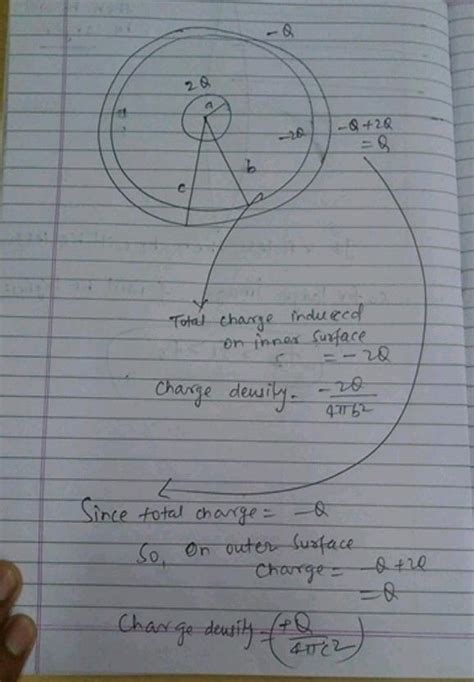 -Q
2Q
a
-2Q
-Q+2Q
= Q
b
c
Total charge induced
on inner surface
= -2Q
Charge density = -2Q / 4πb²
Since total charge = -Q
So, on outer surface
Charge = -Q+2Q
= Q
Charge density = (+Q / 4πc²)